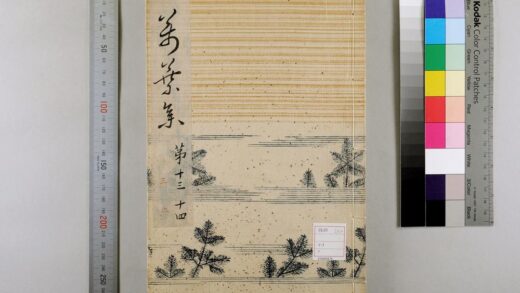 萬葉集
第十三 十四
50
100
150
200
250
Kodak Color Control Patches
Blue
Cyan
Green
Yellow
Red
Magenta
White
3/Color
Black